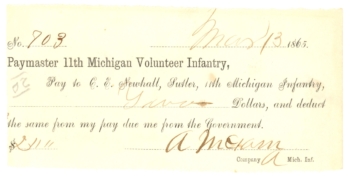 No. 703 Mar 13 1865
Paymaster 11th Michigan Volunteer Infantry,
Pay to C. E. Newhall, Sutler, 11th Michigan Infantry,
Two Dollars, and deduct
the same from my pay due me from the Government.
$2.00 A McCram
Company A Mich. Inf.